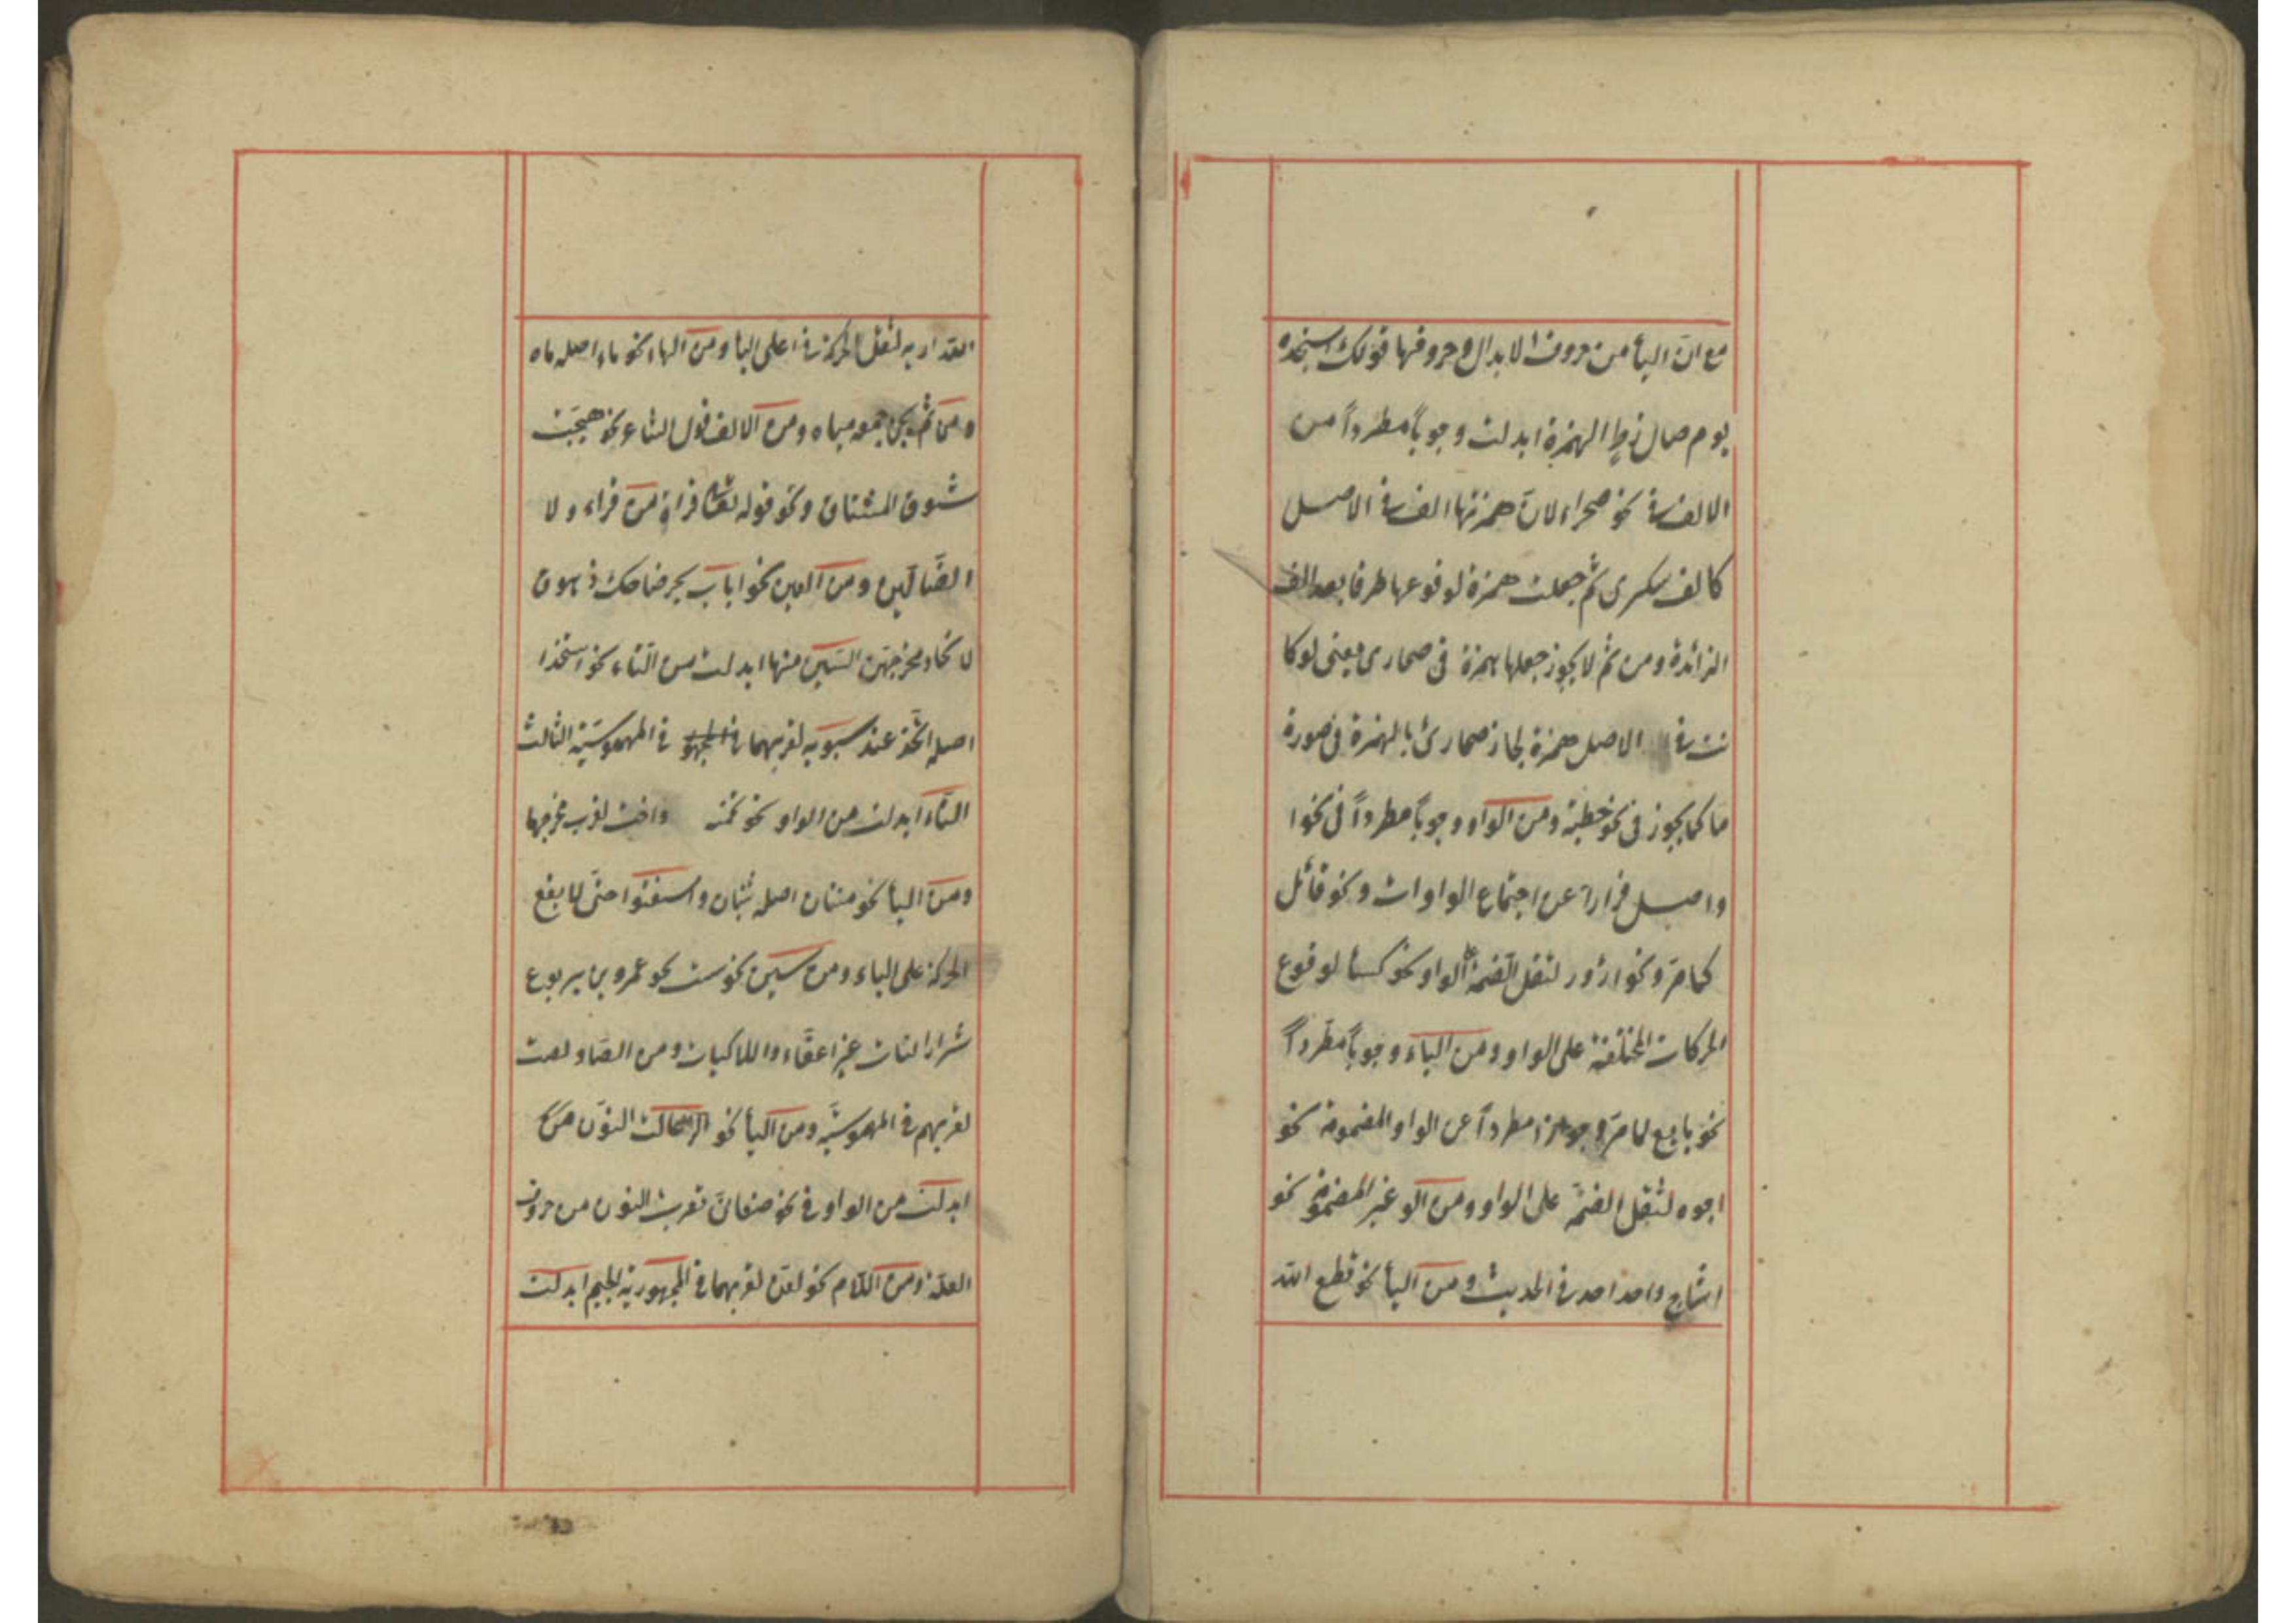 مع انّ اليأ من حروف الابدال وحروفها قولك استنجده
يوم صال زط الهمزة ابدلت وجوباً مطرداً من
الالف فى نحو صحراء لانّ همزتها الف فى الاصل
كالف سكرى ثم جعلت همزة لوقوعها طرفا بعد الف
الزائدة ومن ثم لا يجوز جعلها همزة فى صحارى يعنى لو كا
نت فى الاصل همزة لجاز صحارئ بالهمزة فى صورة
ما كما يجوز فى نحو خطية ومن الواو وجوباً مطرداً فى نحو ا
واصل فرارا عن اجتماع الواوات ونحو قائل
كما مرّ ونحو ادؤر لثقل الضمة على الواو نحو كسأ لوقوع
الحركات المختلفة على الواو ومن الياء وجوباً مطّرداً
نحو بايع لما مرّ وجوازا مطرداً عن الواو المضمومة نحو
اجوه لثقل الضمّة على الواو ومن الو غير المضموم نحو
اشاح واحد احد فى الحديث ومن اليأ نحو قطع الله
لثقل الحركة على اليأ ومن الهاء نحو ماء اصله ماه
ومن ثم يجئ جمعه مياه ومن الالف قول الشاعر نحو هيّجت
شوق المشتاق ونحو قوله من قراء ولا
الضّالّين ومن العين نحو اباب بحر ضاحك زهوق
لاتحاد مخرجهن السّين منها ابدلت من التاء نحو استخذا
اصله اتّخذ عند سيبويه لقربهما فى المهموسيّة الثالث
التّاء ابدلت من الواو نحو تخمة واخت لقرب مخرجها
ومن اليأ نحو اصله ثنيان واسنتوا حتى لا يقع
الحركة على الياء ومن سين نحو ست نحو عمرو بن يربوع
شرار النات غير اعفّاء ولا اكيات ومن الصاد لصت
لقربهم فى المهموسيّه ومن اليأ نحو النّون
ابدلت من الواو فى نحو صنعانىّ لقرب النون من حروف
العلة ومن اللام نحو لعن لقربهما فى المجهورية الجيم ابدلت